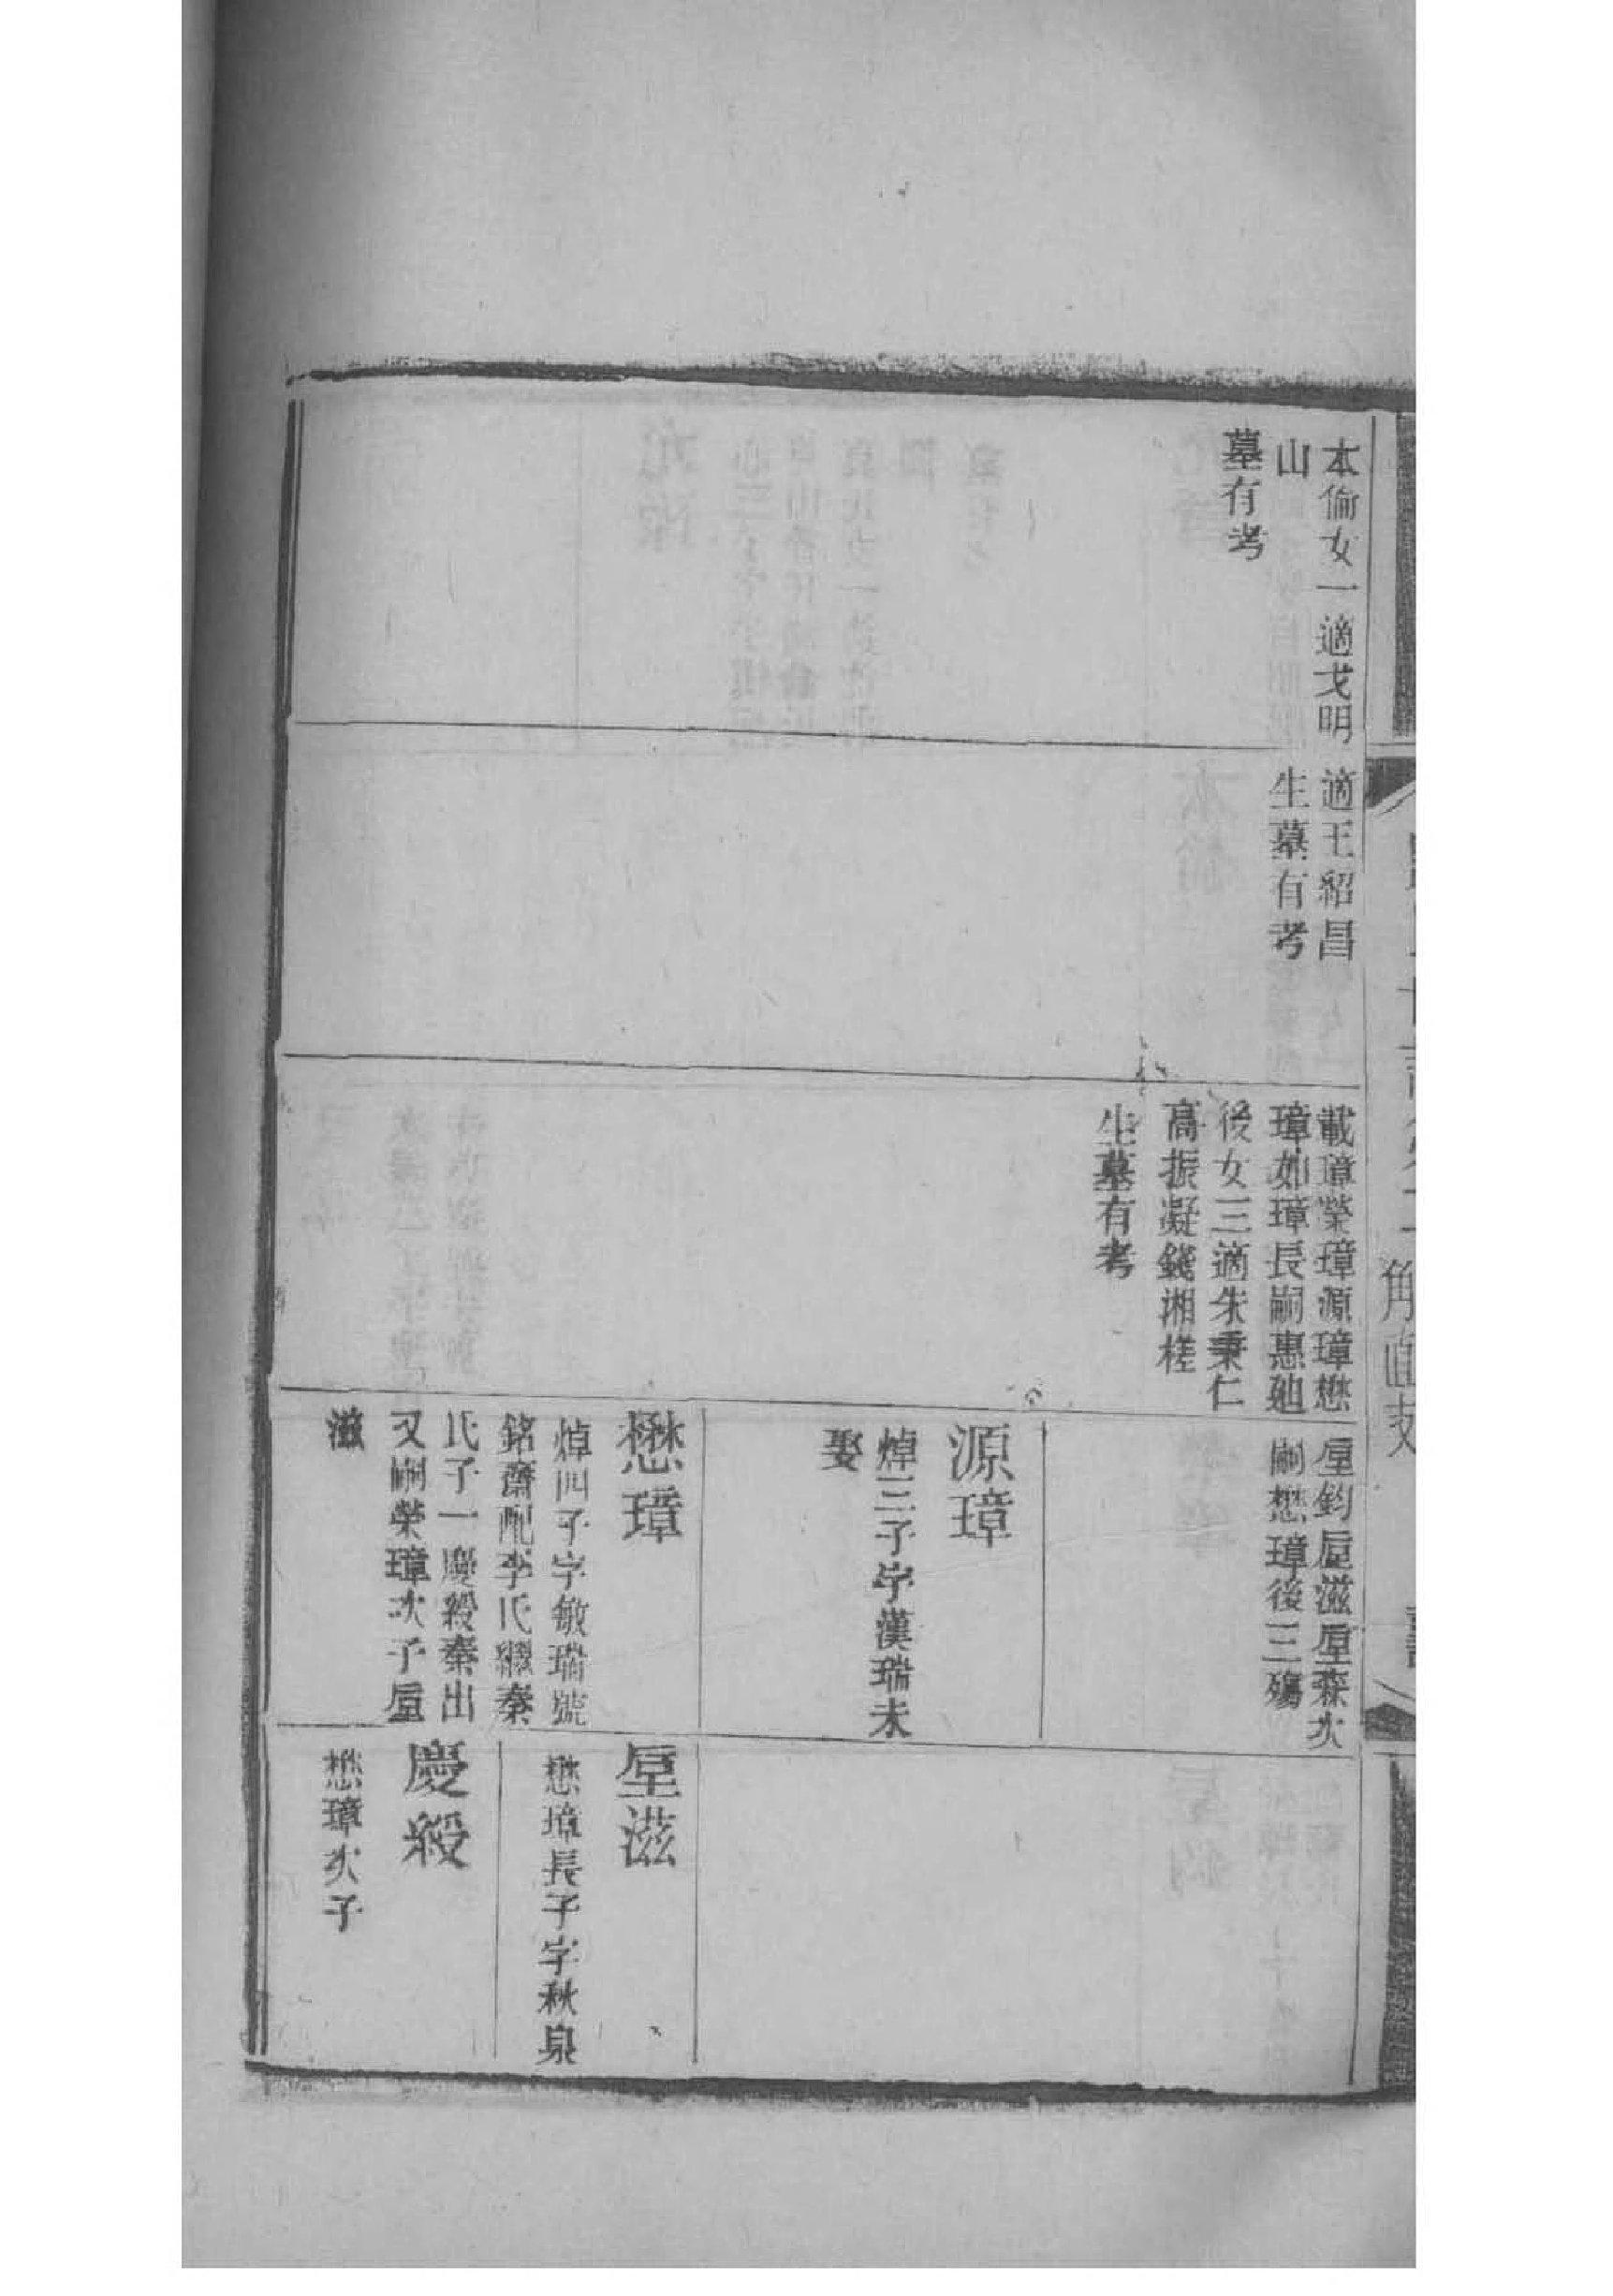 本倫女一適戈明
山
墓有考
適王紹昌
生墓有考
載璋榮璋源璋懋
璋如璋長嗣惠廸
後女三適朱秉仁
高振凝錢湘槎
生墓有考
垕鈞垕滋垕森次
嗣懋璋後三殤
源璋
焯三子字漢瑞未
娶
懋璋
焯四子字敏瑞號
銘齋配李氏繼秦
氏子一慶綬秦出
又嗣榮璋次子垕
滋
垕滋
懋璋長子字秋泉
慶綬
懋璋次子
角直支